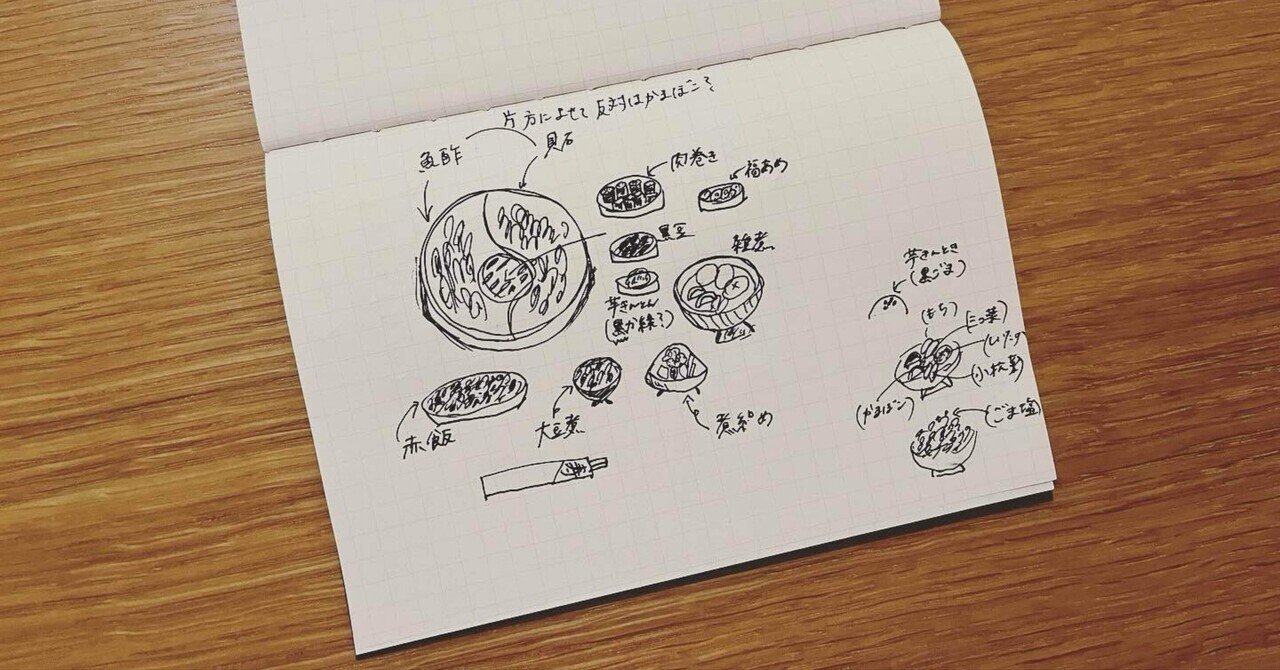 片方によせて反対はかまぼこ?
魚酢
貝石
肉巻き
福あめ
黒豆
雑煮
芋きんとん
(黒か緑?)
芋きんとき
(黒ごま)
(もち)
(三つ葉)
(しいたけ)
(小松菜)
(かまぼこ)
(ごま塩)
赤飯
大豆煮
煮〆め